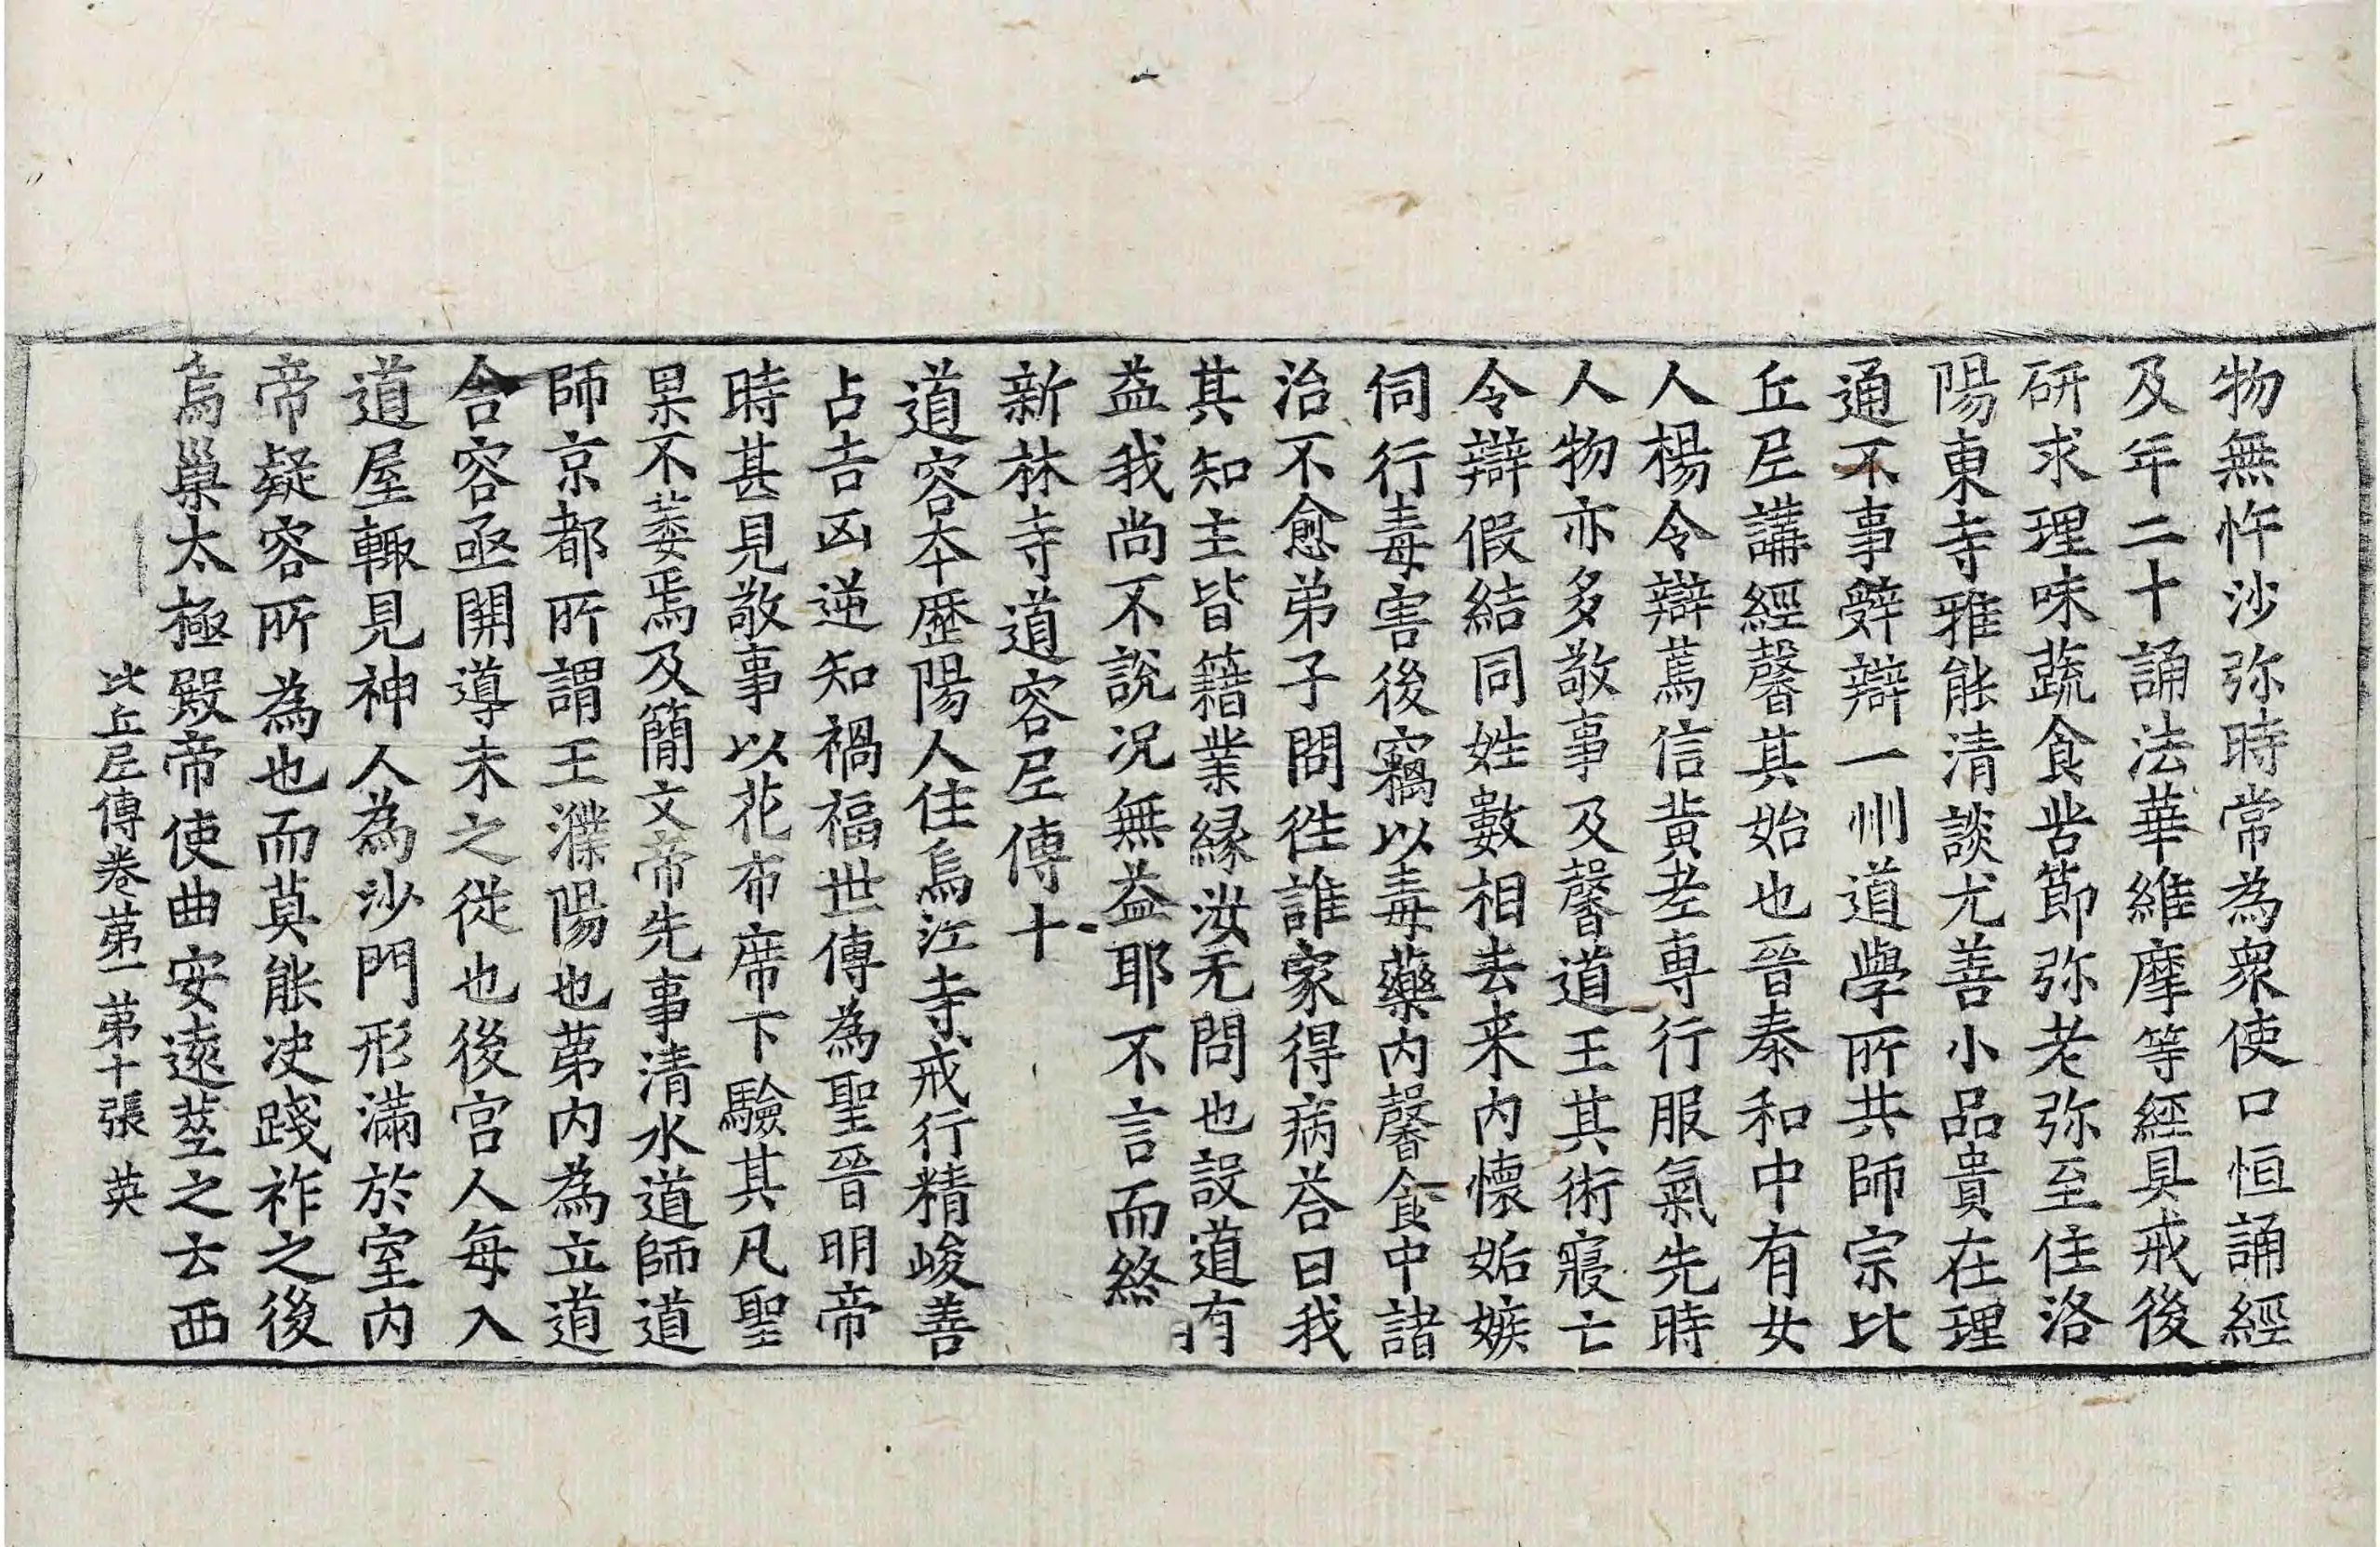 物無忤沙弥時常為衆使口恒誦經
及年二十誦法華維摩等經具戒後
研求理味蔬食苦節弥老弥至住洛
陽東寺雅能清談尤善小品貴在理
通不事辤辯一州道學所共師宗比
丘尼講經馨其始也晉泰和中有女
人楊令辯篤信黄老専行服氣先時
人物亦多敬事及馨道王其術寢亡
令辯假結同姓數相去来内懷妬嫉
伺行毒害後竊以毒藥内馨食中諸
治不愈弟子問徃誰家得病荅曰我
其知主皆籍業緣汝无問也設道有
益我尚不說況無益耶不言而終
新林寺道容尼傳十
道容夲歷陽人住烏江寺戒行精峻善
占吉凶逆知禍福世傳為聖晉明帝
時甚見敬事以花布席下驗其凡聖
果不萎焉及簡文帝先事清水道師道
師京都所謂王濮陽也苐内為立道
舍容亟開導未之從也後宮人每入
道屋輙見神人為沙門形滿於室内
帝疑容所為也而莫能决踐祚之後
烏巢太極殿帝使曲安遠筮之云西
比丘尼傳卷苐一 苐十張 英